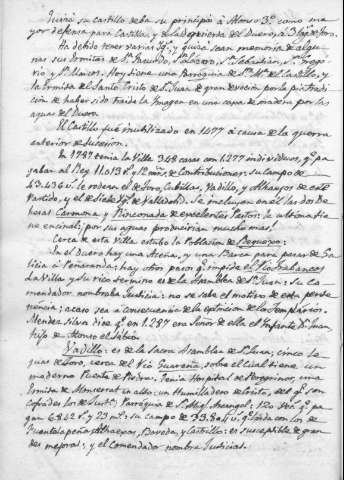 su castillo su principio à Alonso 3º como ma
yor defensa para Castilla, y de la del Duero, à 3 leg.s de Toro.
Ha debido tener varias Ygl.s y quizá sean memoria de algu
nas sus Ermitas de S. S. Lazaro, S. Sebastian, S. Grego
rio y S. Marcos. Hoy tiene una Parroquia de S.ta M.a del Castillo, y
la Ermita de Santo Cristo de S. Juan de gran devocion por la pia tradi
cion de haber sido traida la Imagen en una caxa de madera por las
aguas del Duero.
El Castillo fué inutilizado en 1477 à causa de la guerra
anterior de sucesion.
En 1787 tenia la Villa 348 casas con 1277 individuos, q.e pa
gaban al Rey 11.013 r.s y 12 mrs. de Contribuciones: su campo de
43.436 le rodean el de Toro, Cubillas, Vadillo, y Alhaejos de este
Partido, y el de Siete Ygl.s de Valladolid. Se incluyen en él las dos De
hesas Carmona y Rinconada de excelentes Pastos: la ultima tie
ne encinal; por sus aguas producirian mucho mas!
Cerca de esta Villa estubo la Poblacion de
En el Duero hay una Aceña, y una Barca para pasar de Ga
licia à Peñaranda: hay otros pasos q.e impide el
La Villa y su rico termino es de la Asamblea de S.n Juan: su Co
mendador nombraba Justicia: no se sabe el motivo de esta perte
nencia; acaso sea à consecuencia de la extincion de los Templarios.
Mendez Silva dice q.e en 1287 era Señor de ella el Infante D. Juan,
hijo de Alonso el Sabio.
Vadillo: es de la Sacra Asamblea de S. Juan; cinco le
guas de Toro, cerca del Rio Guareña, sobre el cual tiene un
moderno Puente de Piedra. Tenia Hospital de Peregrinos, una
Ermita de Monserrat en alto: un Humilladero de Cristo, del q.e son
cofrades los de Parroquia de S. Mig.l Arcangel: 120 Vec.s q.e pa
gan 6842 r.s y 23 m.s: su campo de linda con los de
Fuentelapeña, Alhaejos, Bóveda, y Castrillo: es susceptible de gran
des mejoras; y el Comendador nombra Justicias.